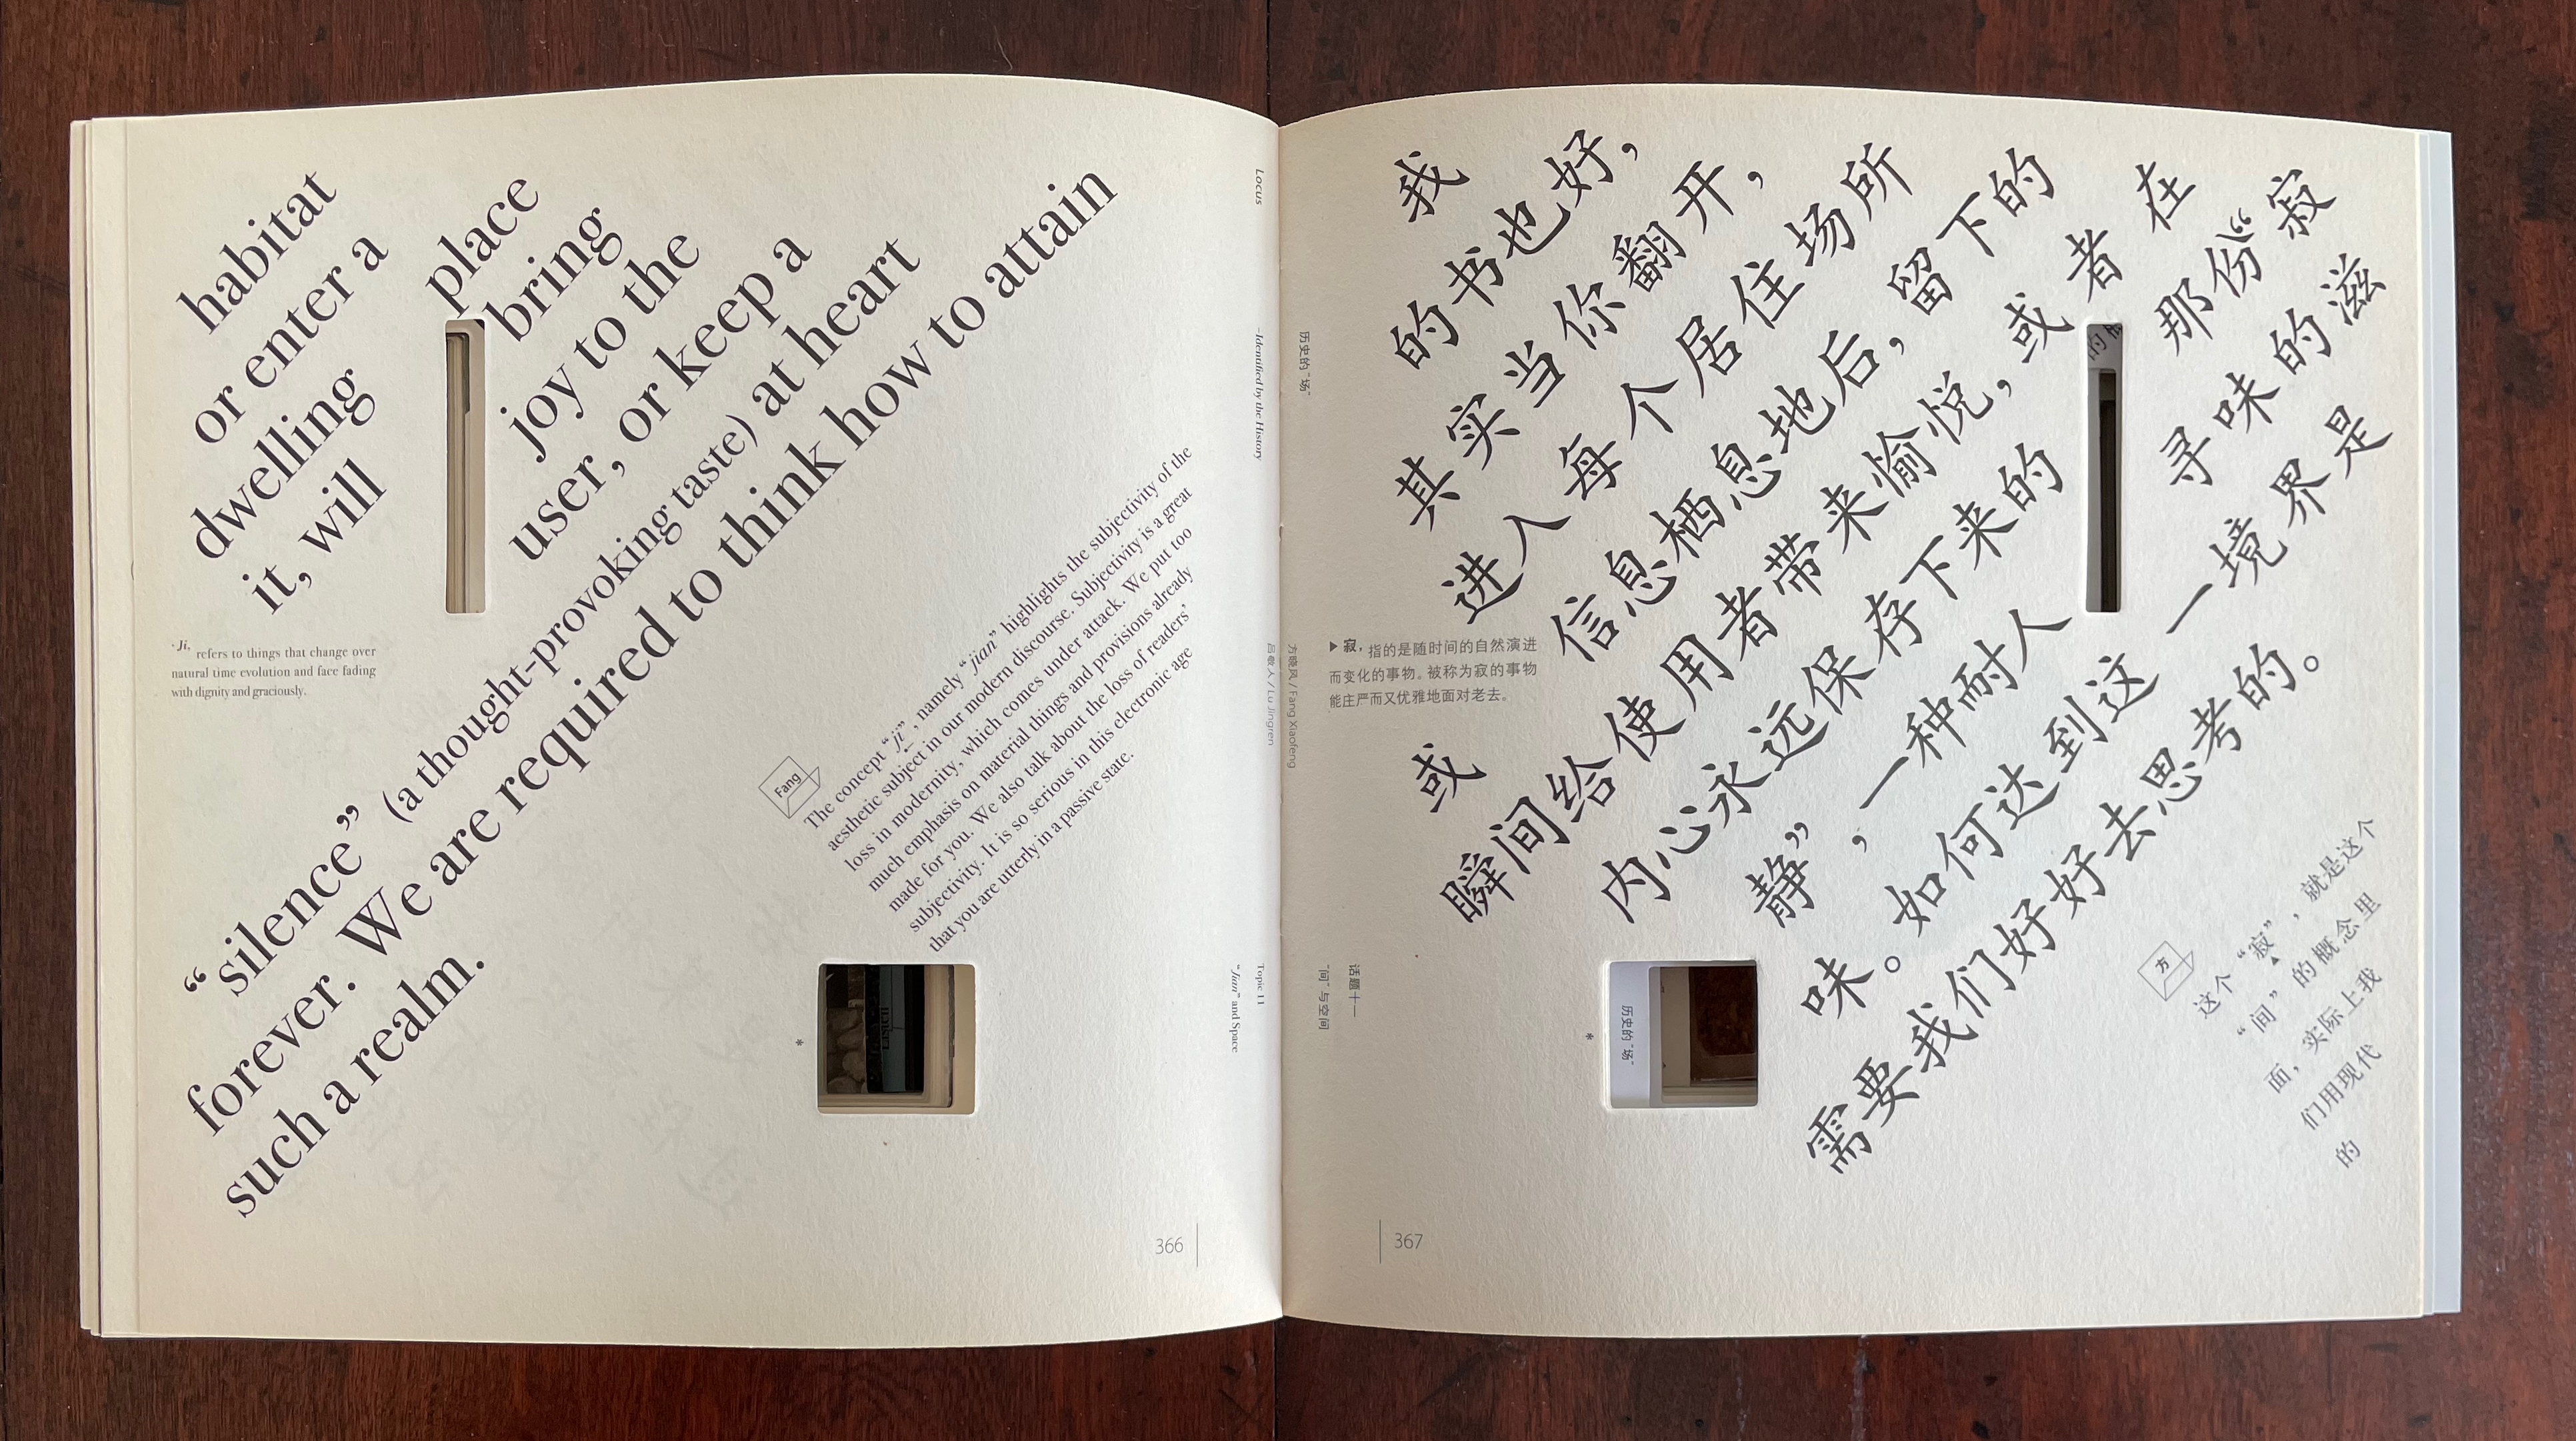 habitat
or enter a
dwelling place
it, will bring
joy to the
user, or keep a
“silence” (a thought-provoking taste) at heart
forever. We are required to think how to attain
such a realm.
·Ji, refers to things that change over
natural time evolution and face fading
with dignity and graciously.
Fang
The concept “ji”, namely “jian” highlights the subjectivity of the
aesthetic subject in our modern discourse. Subjectivity is a great
loss in modernity, which comes under attack. We put too
much emphasis on material things and provisions already
made for you. We also talk about the loss of readers’
subjectivity. It is so serious in this electronic age
that you are utterly in a passive state.
*
Listen
Locus
—Identified by the History
吕敬人 / Lu Jingren
Topic 11
“Jian” and Space
366
历史的“场”
方晓风 / Fang Xiaofeng
话题十一
“间”与空间
我
的书也好，
其实当你翻开，
进入每个居住场所
或信息栖息地后，留下的
瞬间给使用者带来愉悦，或者在
内心永远保存下来的那份“寂
静”，一种耐人寻味的滋
味。如何达到这一境界是
需要我们好好去思考的。
▶寂，指的是随时间的自然演进
而变化的事物。被称为寂的事物
能庄严而又优雅地面对老去。
的
*
历史的“场”
方
这个“寂”，就是这个
“间”的概念里
面，实际上我
们用现代
的
367